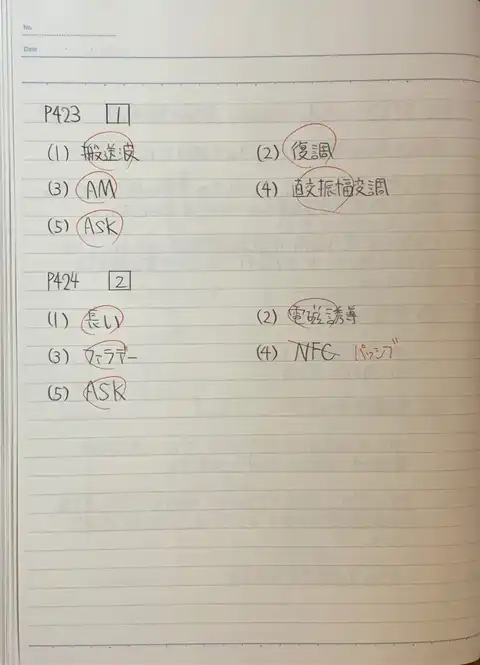 No.
Date
P423 1
(1) 搬送波 (2) 復調
(3) AM (4) 直交振幅変調
(5) ASK
P424 2
(1) 長い (2) 電磁誘導
(3) ファラデー (4) NFC パッシブ
(5) ASK